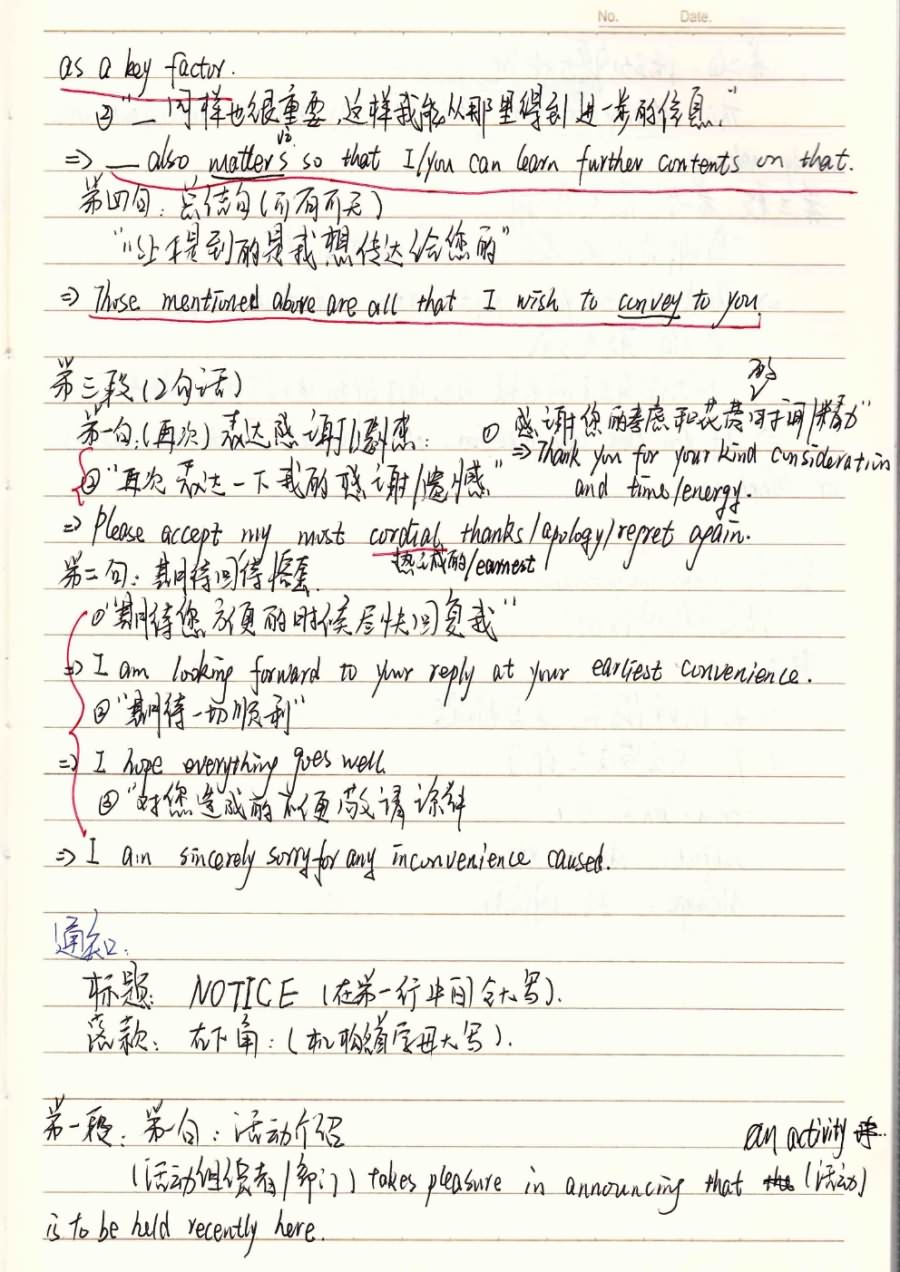 No. Date.
as a key factor.
②"__同样也很重要,这样我能从那里得到进一步的信息."
vi.
⇒ __ also matters so that I/you can learn further contents on that.
第四句:总结句(可有可无)
"以上提到的是我想传达给您的"
⇒ Those mentioned above are all that I wish to convey to you.
第三段(2句话)
的
第一句:(再次)表达感谢/遗憾: ①感谢您的考虑和花费时间/精力"
⇒ Thank you for your kind consideration
②"再次表达一下我的感谢/遗憾" and time/energy.
⇒ Please accept my most cordial thanks/apology/regret again.
热诚的/earnest
第二句:期待回信
①"期待您方便的时候尽快回复我"
⇒ I am looking forward to your reply at your earliest convenience.
②"期待一切顺利"
⇒ I hope everything goes well.
③"对您造成的不便敬请谅解
⇒ I am sincerely sorry for any inconvenience caused.
通知:
标题: NOTICE (在第一行中间全大写).
落款: 右下角:(机构首字母大写).
第一段:第一句:活动介绍 an activity
(活动组织者/部门) takes pleasure in announcing that (活动)
is to be held recently here.